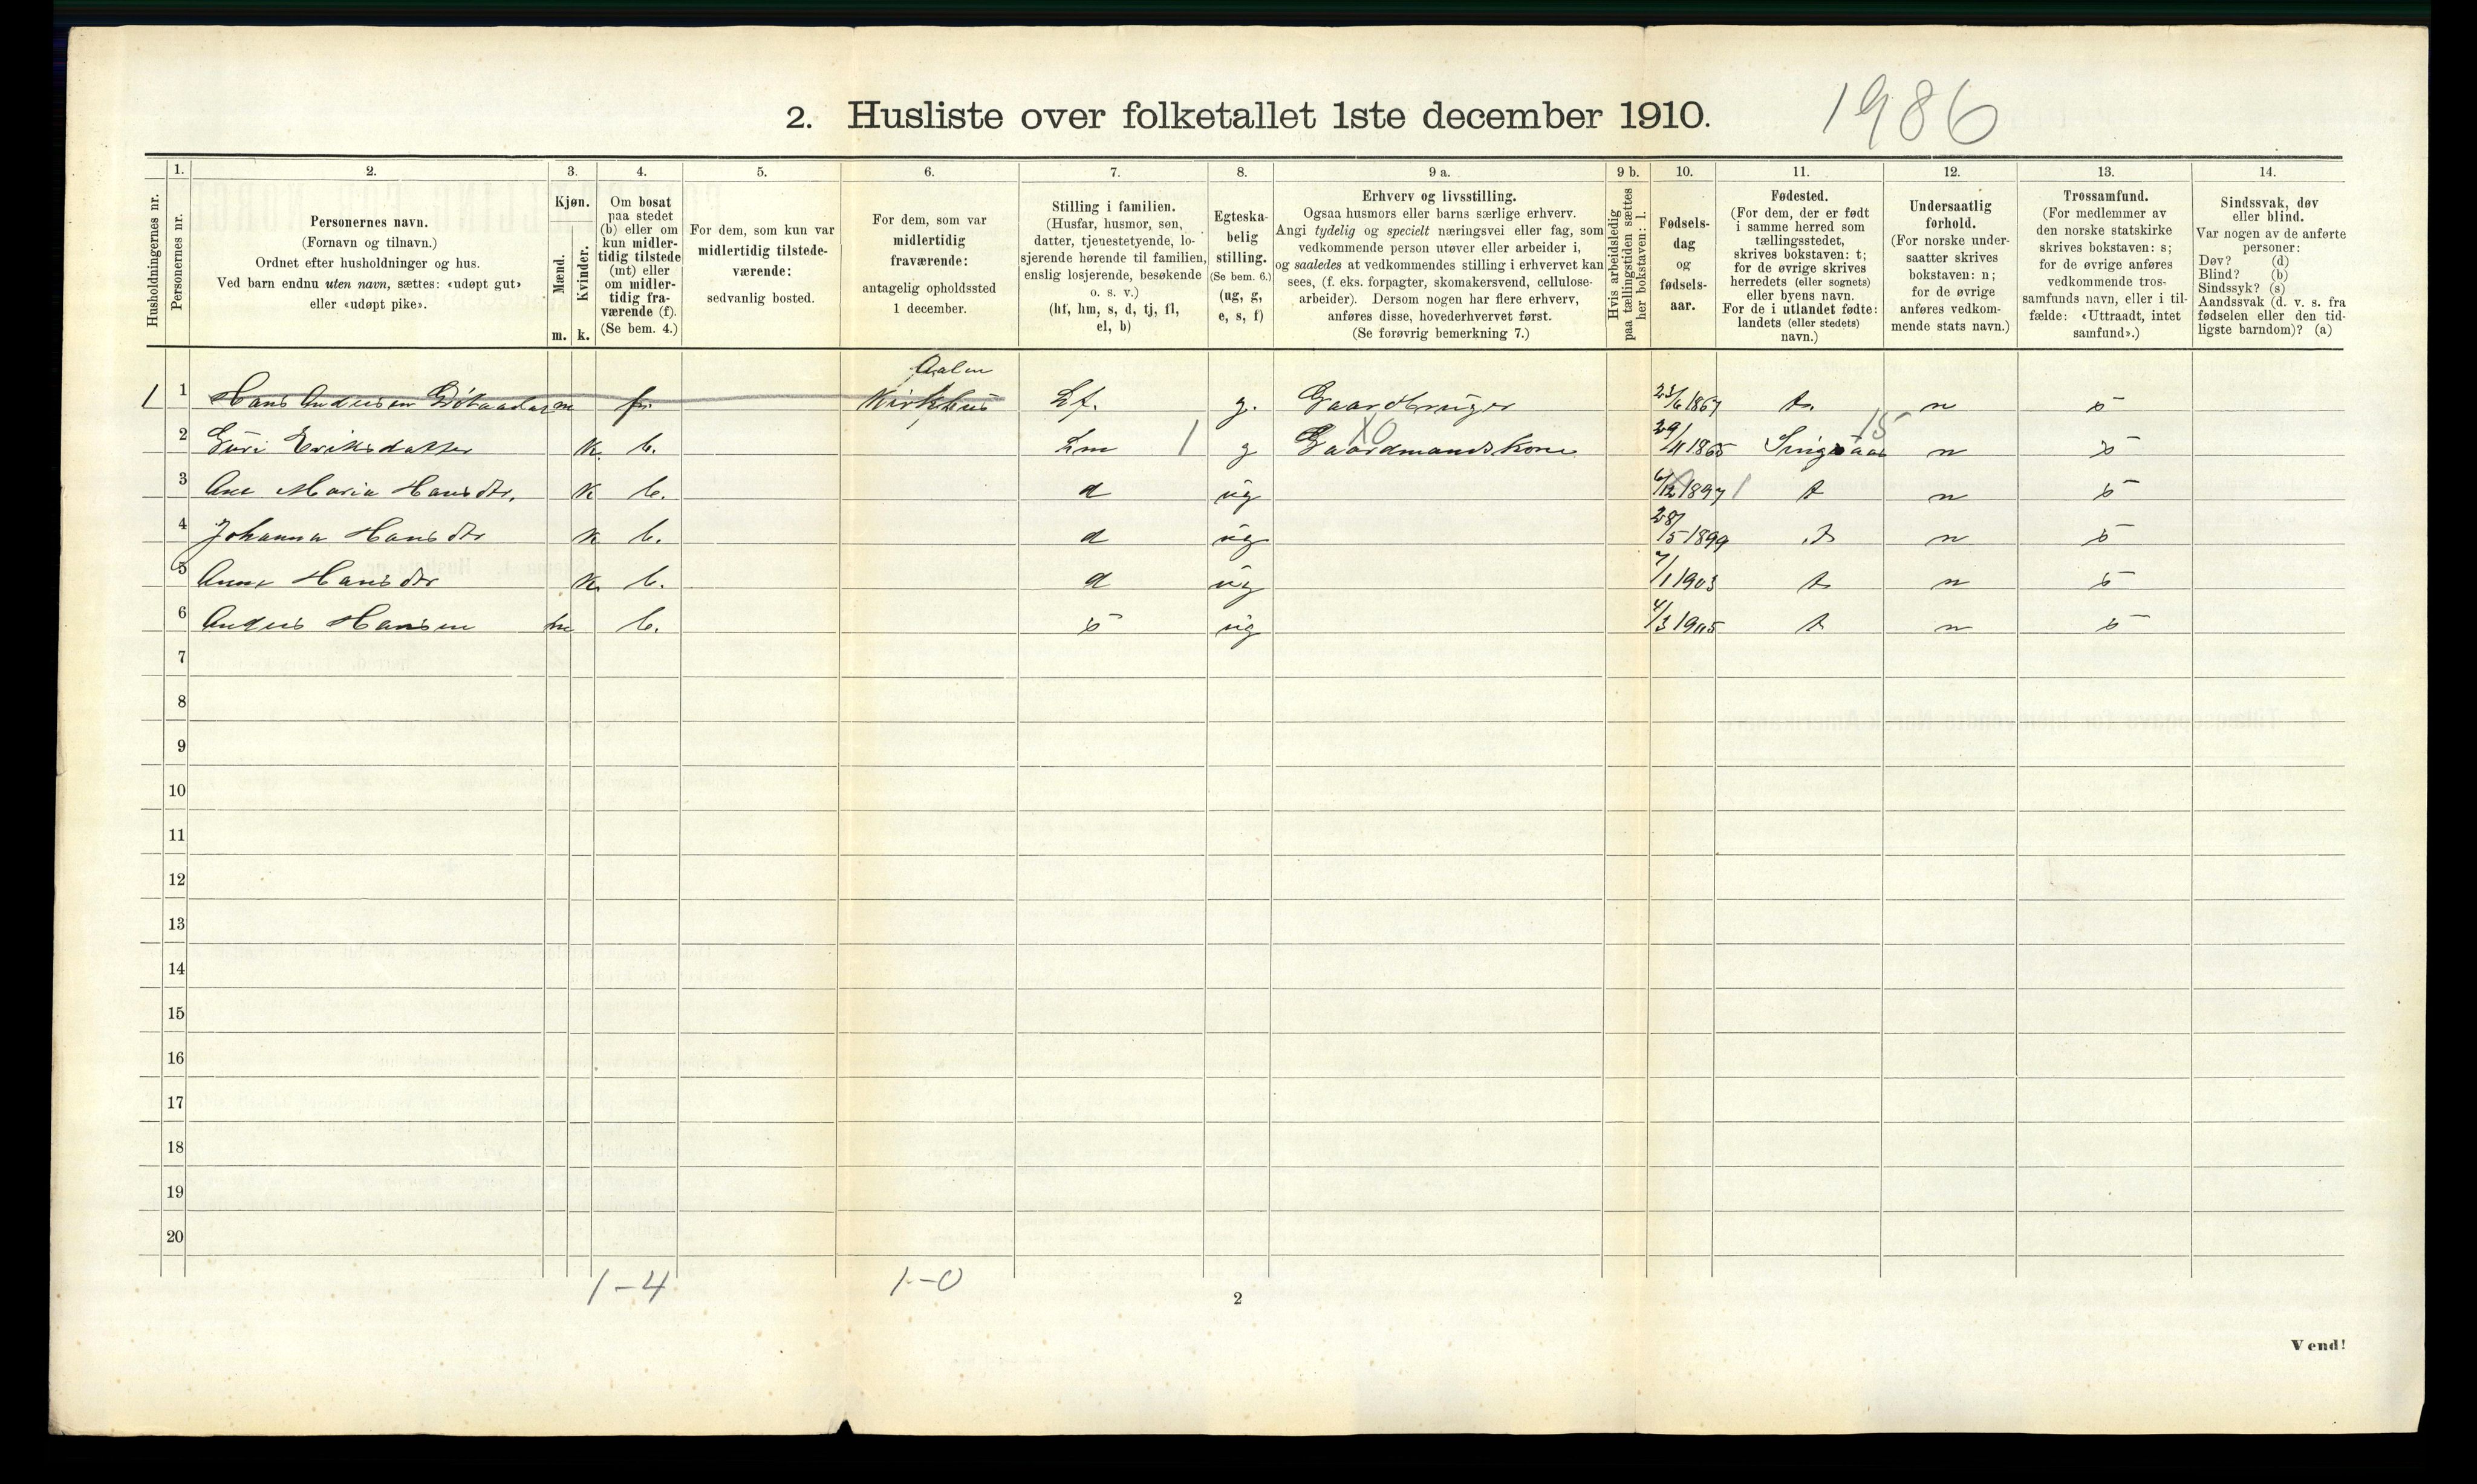 2. Husliste over folketallet 1ste december 1910.
1986
Husholdningernes nr.
1.
Personernes nr.
2.
Personernes navn.
(Fornavn og tilnavn.)
Ordnet efter husholdninger og hus.
Ved barn endnu uten navn, sættes: «udøpt gut»
eller «udøpt pike».
3.
Kjøn.
Mænd.
Kvinder.
m. k.
4.
Om bosat
paa stedet
(b) eller om
kun midler-
tidig tilstede
(mt) eller
om midler-
tidig fra-
værende (f).
(Se bem. 4.)
5.
For dem, som kun var
midlertidig tilstede-
værende:
sedvanlig bosted.
6.
For dem, som var
midlertidig
fraværende:
antagelig opholdssted
1 december.
7.
Stilling i familien.
(Husfar, husmor, søn,
datter, tjenestetyende, lo-
sjerende hørende til familien,
enslig losjerende, besøkende
o. s. v.)
(hf, hm, s, d, tj, fl,
el, b)
8.
Egteska-
belig
stilling.
(Se bem. 6.)
(ug, g,
e, s, f)
9 a.
Erhverv og livsstilling.
Ogsaa husmors eller barns særlige erhverv.
Angi tydelig og specielt næringsvei eller fag, som
vedkommende person utøver eller arbeider i,
og saaledes at vedkommendes stilling i erhvervet kan
sees, (f. eks. forpagter, skomakersvend, cellulose-
arbeider). Dersom nogen har flere erhverv,
anføres disse, hovederhvervet først.
(Se forøvrig bemerkning 7.)
9 b.
Hvis arbeidsledig
paa tællingstiden sættes
her bokstaven: l.
10.
Fødsels-
dag
og
fødsels-
aar.
11.
Fødested.
(For dem, der er født
i samme herred som
tællingsstedet,
skrives bokstaven: t;
for de øvrige skrives
herredets (eller sognets)
eller byens navn.
For de i utlandet fødte:
landets (eller stedets)
navn.)
12.
Undersaatlig
forhold.
(For norske under-
saatter skrives
bokstaven: n;
for de øvrige
anføres vedkom-
mende stats navn.)
13.
Trossamfund.
(For medlemmer av
den norske statskirke
skrives bokstaven: s;
for de øvrige anføres
vedkommende tros-
samfunds navn, eller i til-
fælde: «Uttraadt, intet
samfund».)
14.
Sindssvak, døv
eller blind.
Var nogen av de anførte
personer:
Døv? (d)
Blind? (b)
Sindssyk? (s)
Aandssvak (d. v. s. fra
fødselen eller den tid-
ligste barndom)? (a)
Aalen
1 1 Hans Andersen m f. Kirkhus Hf. g. Gaardbruger 23/6 1867 t. n s
10 15
2 Guri Eriksdatter k. b. Hm 1 g Gaardmandskone 29/11 1865 Singsaas n s
3 Ane Maria Hansdtr. k b. d ug 6/12 1897 1 t n s
4 Johanna Hansdtr k b. d ug 28/5 1899 t n s
5 Anne Hansdtr k. b. d ug 7/1 1903 t n s
6 Anders Hansen m b. s ug 4/3 1905 t n s
7
8
9
10
11
12
13
14
15
16
17
18
19
20
1-4 1-0
2
Vend!